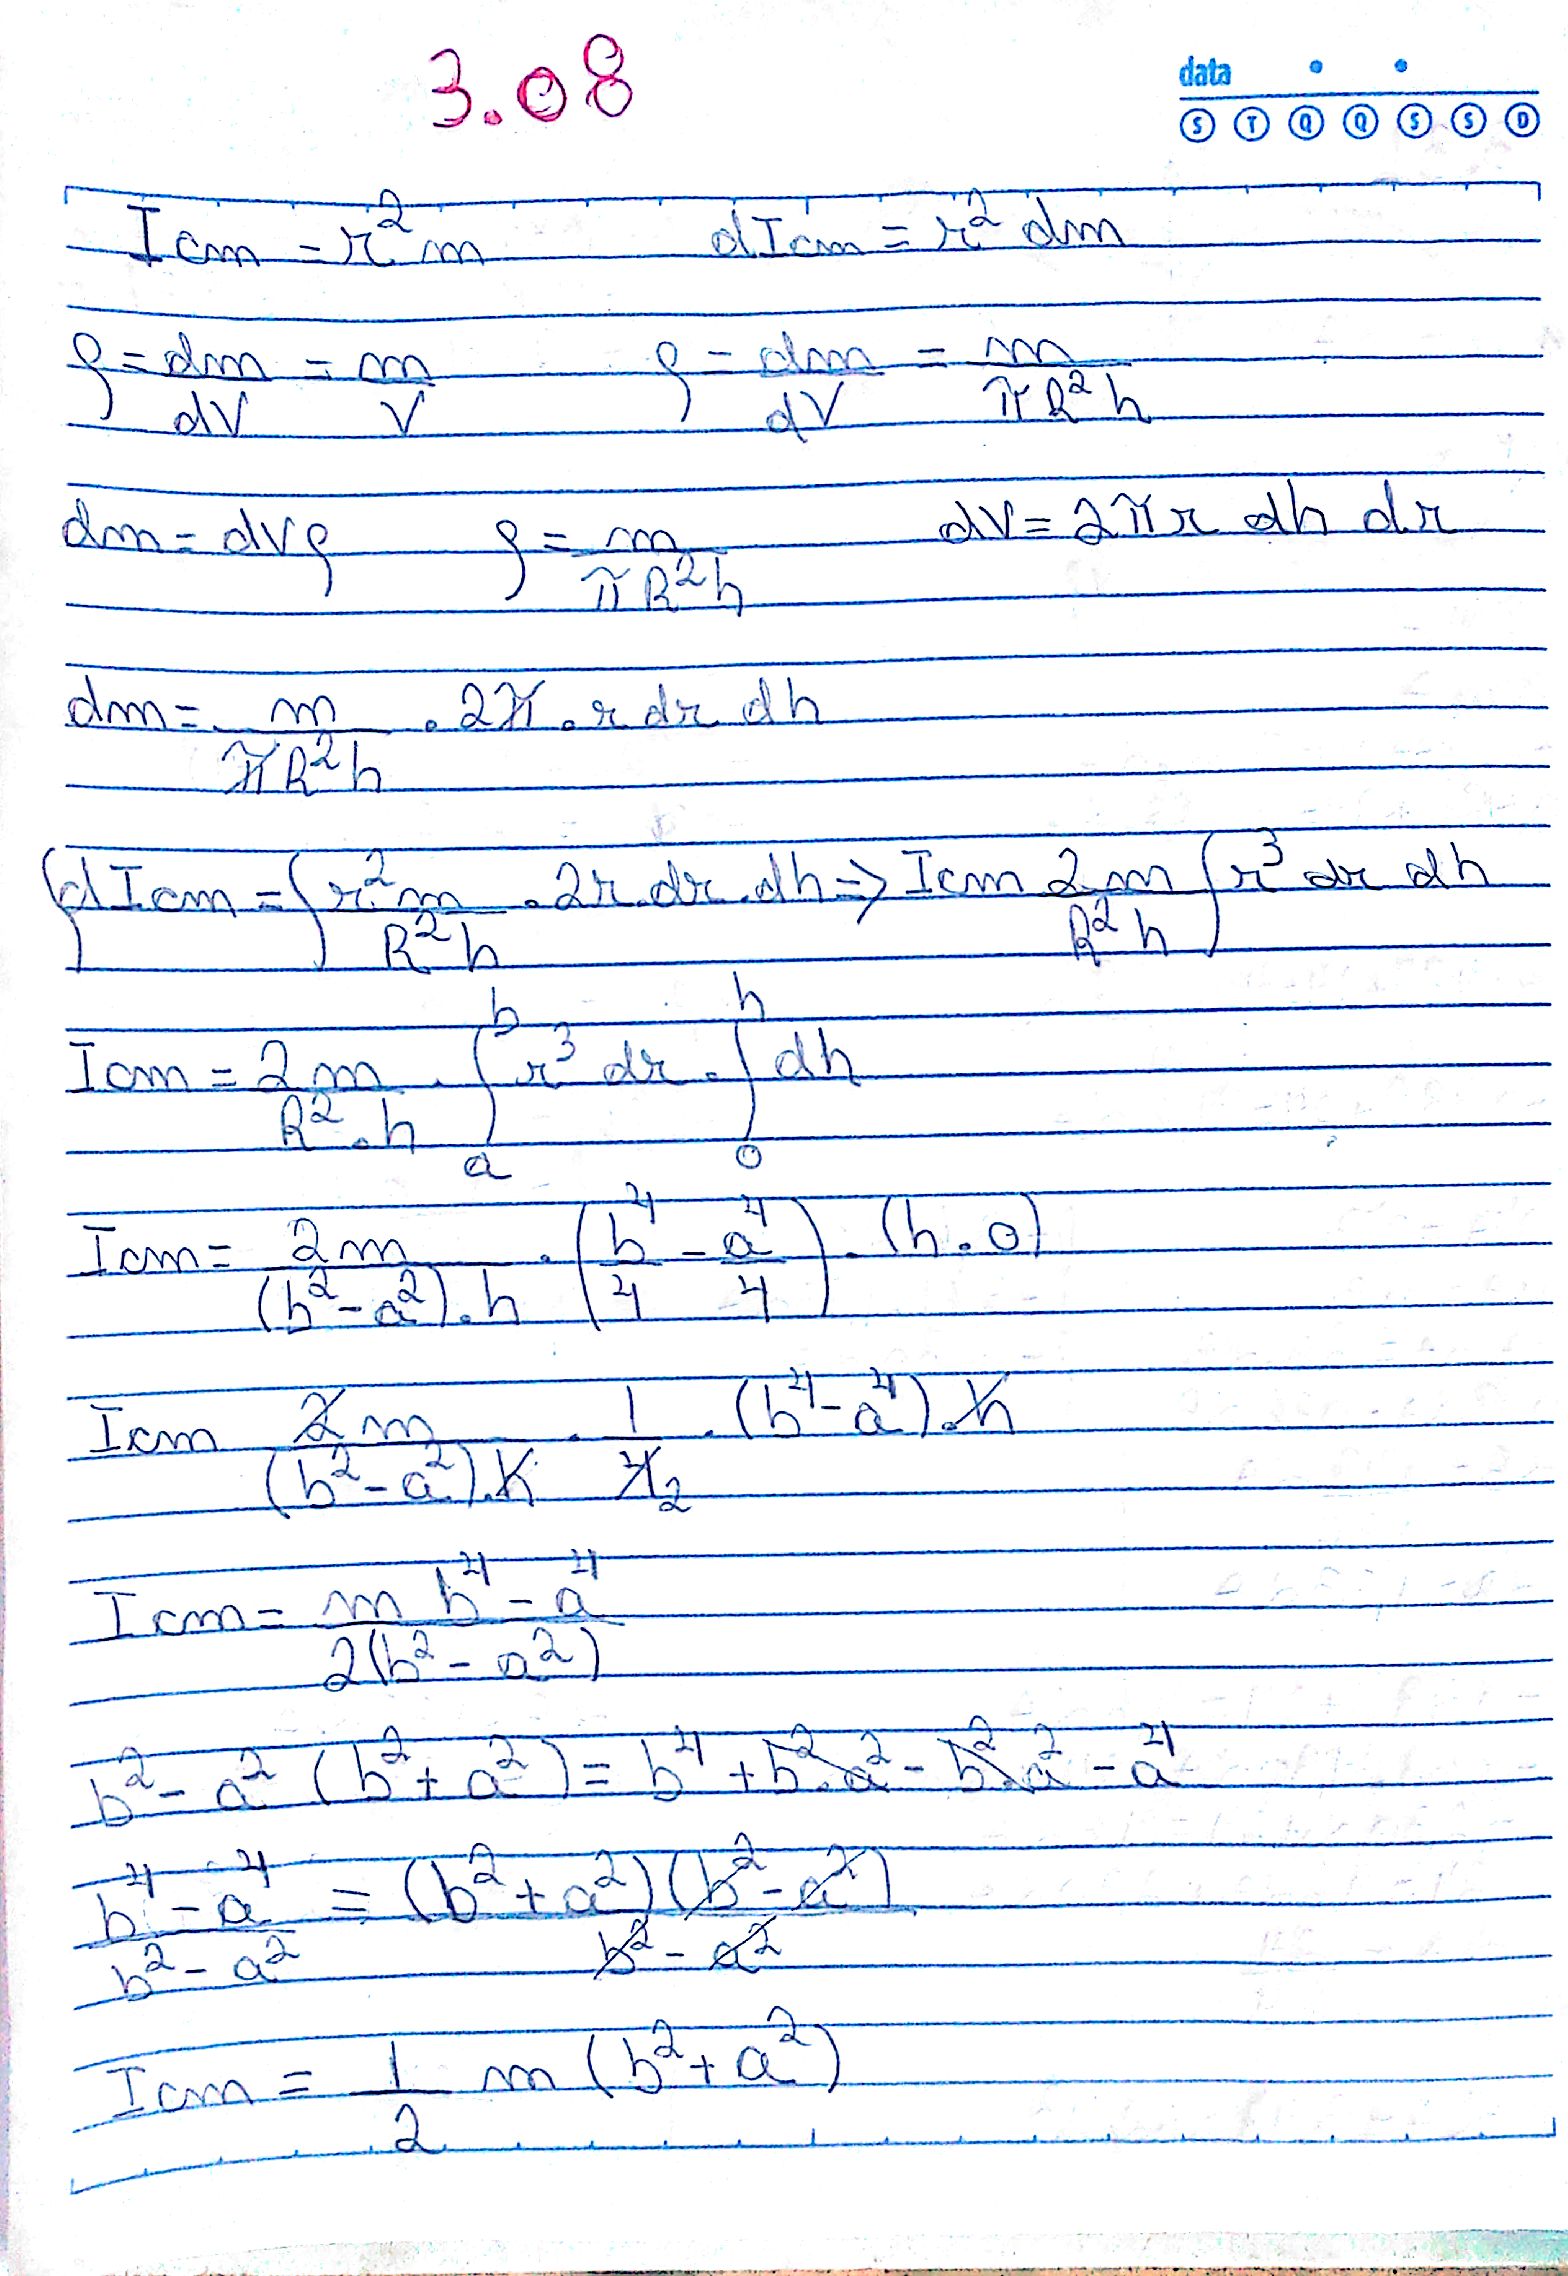 3.08
data
S T Q Q S S D
Icm = r² m    dIcm = r² dm
ρ = dm/dV = m/V    ρ = dm/dV = m/πR²h
dm = dVρ    ρ = m/πR²h    dV = 2πr dh dr
dm = m/πR²h . 2π . r dr dh
∫dIcm = ∫ r² m/R²h . 2r.dr.dh => Icm 2m/R²h ∫ r³ dr dh
Icm = 2m/R².h . ∫ₐᵇ r³ dr . ∫₀ʰ dh
Icm = 2m/(b²-a²).h . (b⁴/4 - a⁴/4) . (h.0)
Icm 2m/(b²-a²).h . 1/4 2 . (b⁴-a⁴).h
Icm = m b⁴-a⁴/2(b²-a²)
b²-a² (b²+a²) = b⁴+b².a²-b².a²-a⁴
b⁴-a⁴/b²-a² = (b²+a²)(b²-a²)/b²-a²
Icm = 1/2 m (b²+a²)